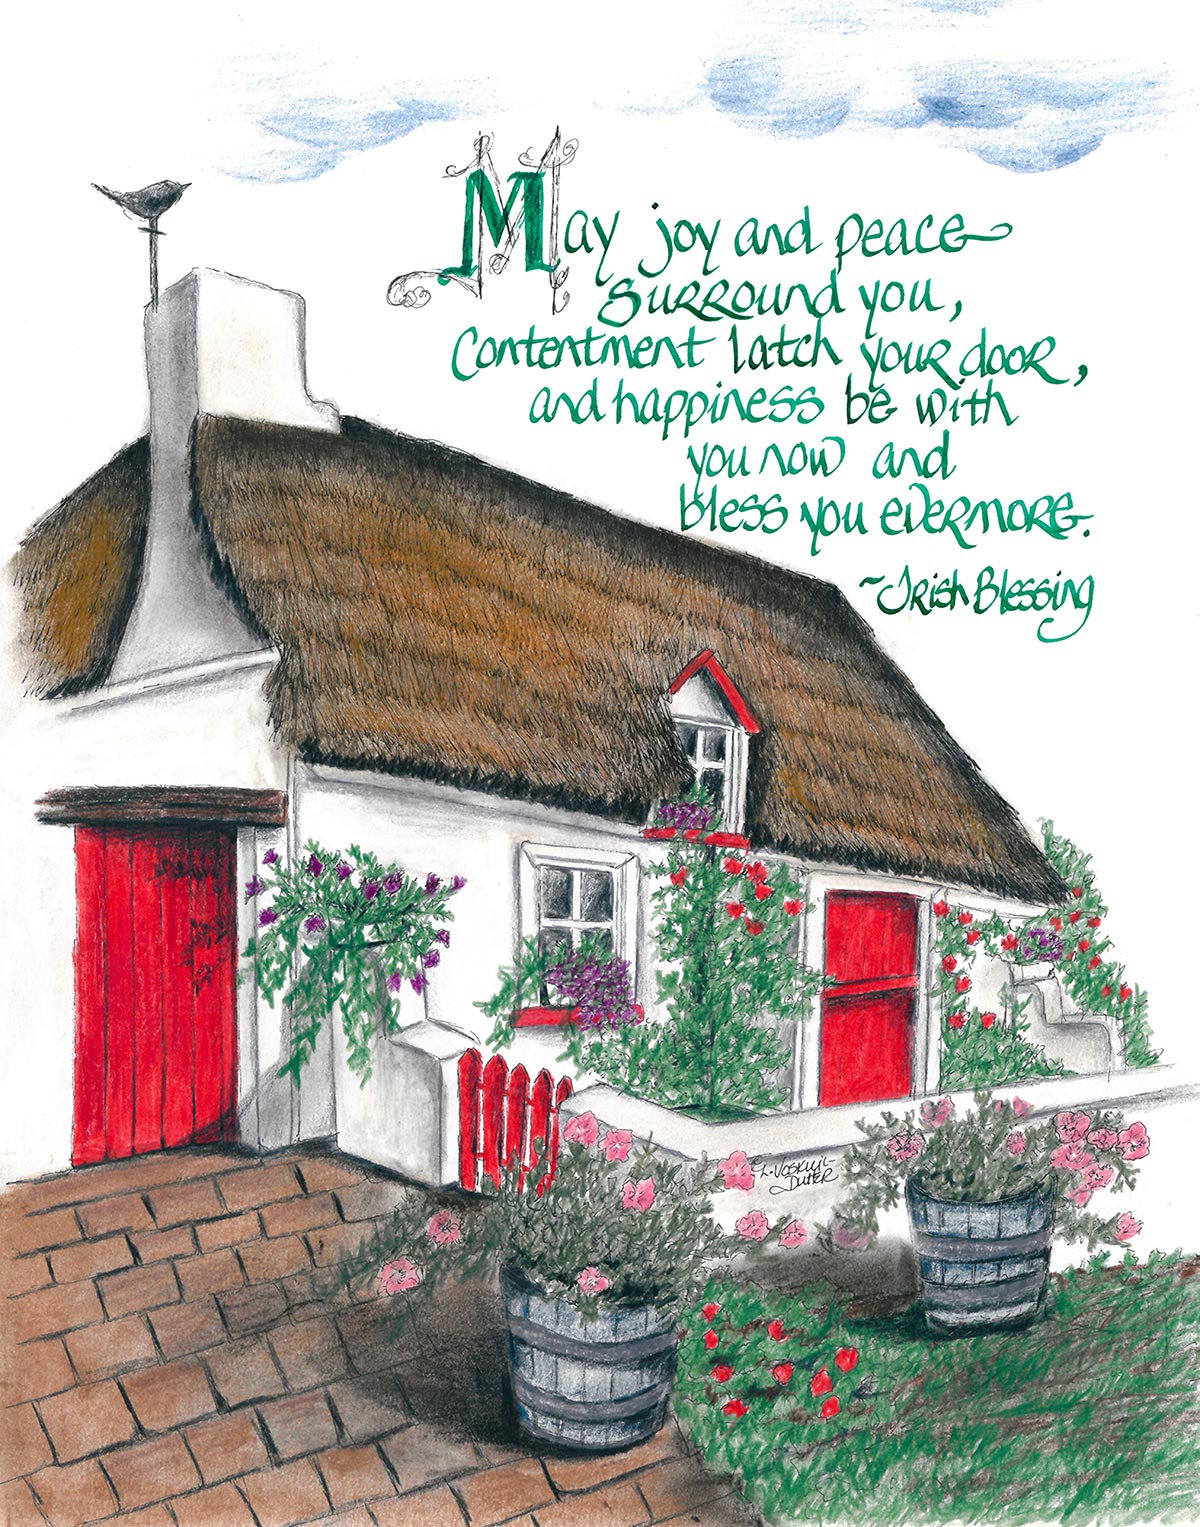 May joy and peace
surround you,
Contentment latch your door,
and happiness be with
you now and
bless you evermore.
~Irish Blessing
L. Voskuil-
Dutter